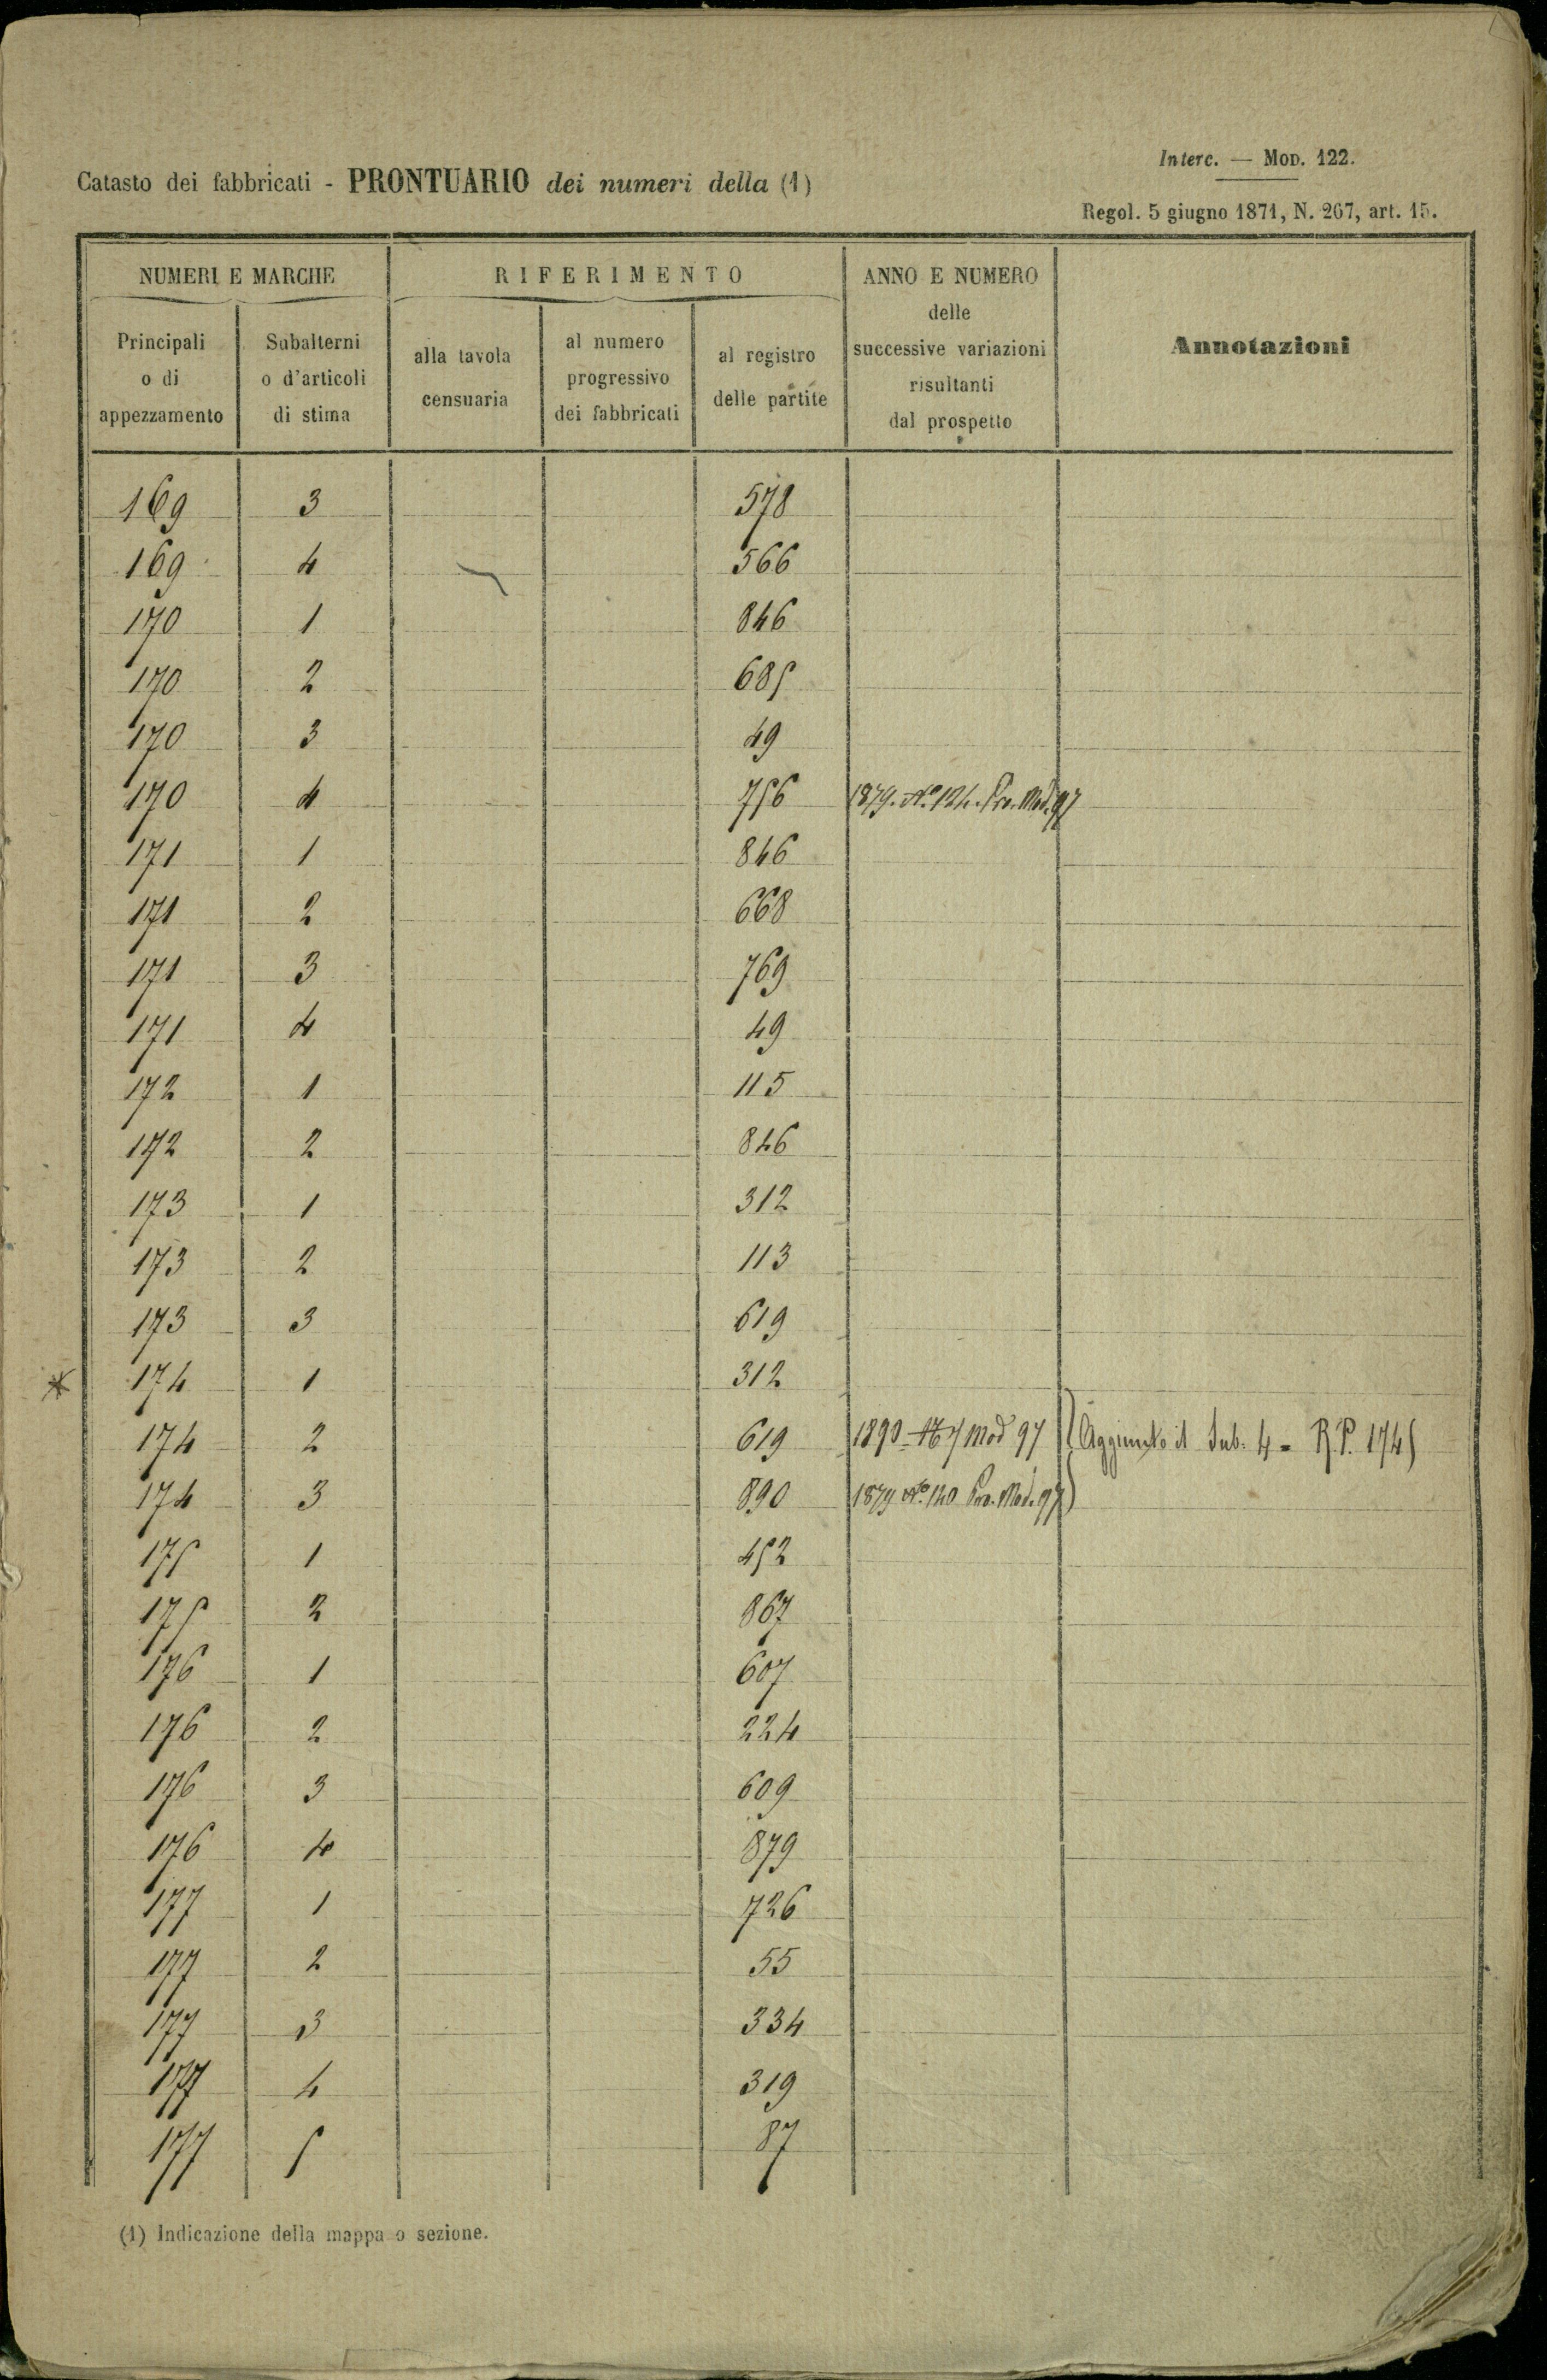 Interc. — MOD. 122.
Catasto dei fabbricati - PRONTUARIO dei numeri della (1)
Regol. 5 giugno 1871, N. 267, art. 15.
NUMERI E MARCHE
RIFERIMENTO
ANNO E NUMERO
delle
successive variazioni
risultanti
dal prospetto
Annotazioni
Principali
o di
appezzamento
Subalterni
o d'articoli
di stima
alla tavola
censuaria
al numero
progressivo
dei fabbricati
al registro
delle partite
169 3 578
169 4 566
170 1 846
170 2 685
170 3 49
170 4 756 1879. N.º 124. Pro. Mod. 97
171 1 846
171 2 668
171 3 769
171 4 49
172 1 115
172 2 846
173 1 312
173 2 113
173 3 619
* 174 1 312
174 2 619 1890 Mod 97 Aggiunto il Sub. 4 = R.P. 1745
174 3 890 1879 N.º 120 Pro. Mod. 97
175 1 452
175 2 867
176 1 607
176 2 224
176 3 609
176 4 879
177 1 726
177 2 55
177 3 334
177 4 319
177 5 87
(1) Indicazione della mappa o sezione.